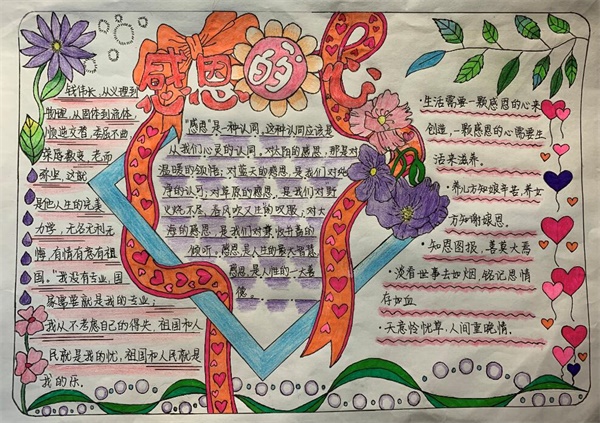 感恩的心
钱伟长,从义理到
物理,从固体到流体,
顺逆交替,委屈不曲,
荣辱数变,老而
弥坚,这就
是他人生的完美
力学,无名无利无
悔,有情有意有祖
国。"我没有专业,国
家需要就是我的专业;
我从不考虑自己的得失,祖国和人
民就是我的忧,祖国和人民就是
我的乐。
"感恩"是一种认同,这种认同应该是
从我们心灵的认同,对太阳的感恩,那是对
温暖的领悟;对蓝天的感恩,是我们对纯
净的认可;对草原的感恩,是我们对野
火烧不尽,春风吹又生的叹服;对大
海的感恩,是我们对兼收并蓄的
倾听。感恩是人生的最大智慧,
感恩,是人性的一大美
德。
·生活需要一颗感恩的心来
创造,一颗感恩的心需要生
活来滋养。
·养儿方知娘辛苦,养女
方知谢娘恩。
·知恩图报,善莫大焉
·淡看世事去如烟,铭记恩情
存如血
·天意怜忧草,人间重晚情。